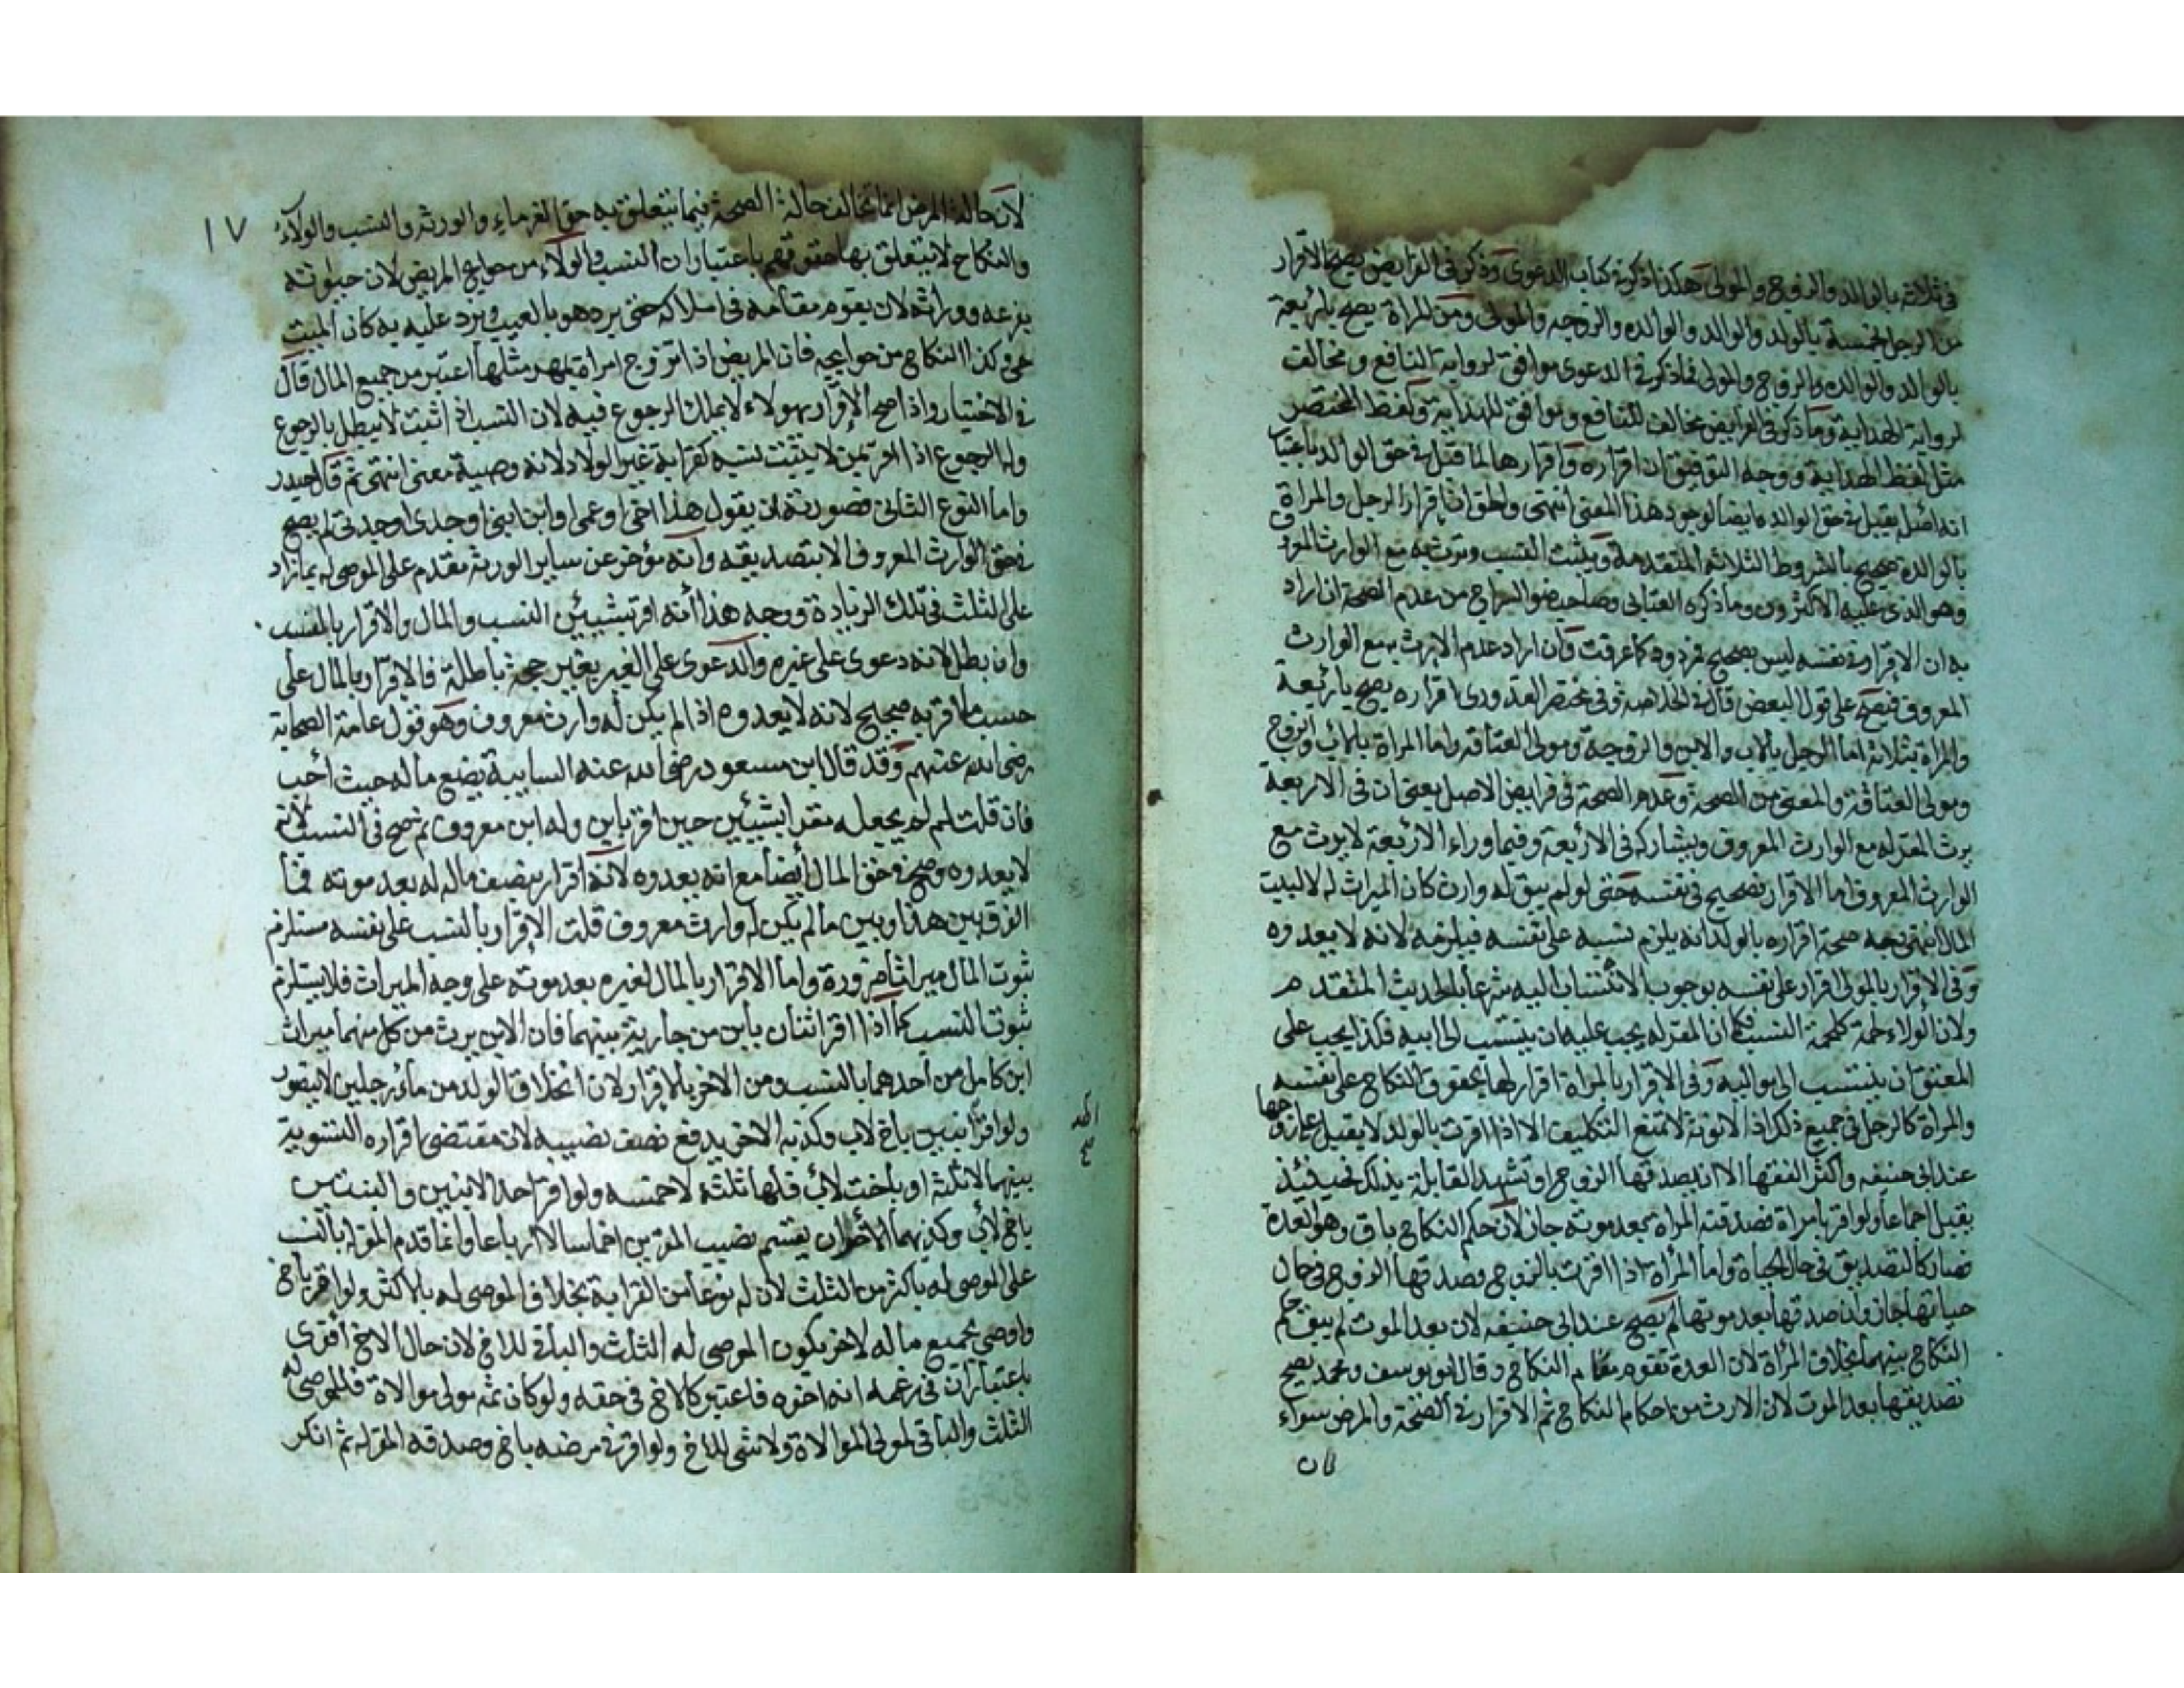 في ثلاثة بالوالد والزوج والمولى هكذا ذكره في كتاب الدعوى وذكر في الفرايض يصح الاقرار
من الرجل بخمسة بالولد والوالد والوالده والزوجه والمولى ومن المراة يصح باربعة
بالوالد والوالده والزوج والمولى فماذكر في الدعوى موافق لرواية النافع ومخالف
لرواية الهداية وما ذكر في الفرايض مخالف للنافع وموافق للهداية ولفظ المختصر
مثل لفظ الهداية ووجه التوفيق ان اقراره واقرارها لما قبل في حق الوالد باعتبار
انه اصل يقبل في حق الوالده ايضا لوجود هذا المعنى انتهى والحق ان اقرار الرجل والمراة
بالوالدة صحيح بالشروط الثلاثه المتقدمة ويثبت النسب وترث به مع الوارث المعروف
وهو الذي عليه الاكثرون وما ذكره العتابي وصاحب ضوء السراج من عدم الصحة ان اراد
به ان الاقرار في نفسه ليس بصحيح فمردود كما عرفت وان اراد عدم الارث مع الوارث
المعروف فيصح على قول البعض قال في الخلاصة وفي مختصر القدوري اقراره يصح باربعة
والمراة بثلاثة اما الرجل بالاب والابن والزوجة ومولى العتاقه واما المراة بالاب والزوج
ومولى العتاقة والمعنى من الصحة وعدم الصحة في فرايض الاصل يعني ان في الاربعة
يرث المقر له مع الوارث المعروف ويشاركه في الاربعة وفيما وراء الاربعة لا يرث مع
الوارث المعروف اما الاقرار فصحيح في نفسه حتى لو لم يبق له وارث كان الميراث له لا لبيت
المال انتهى وجه صحة اقراره بالولد انه يلزم نسبه على نفسه فيلزمه لانه لا يعدوه
وفي الاقرار بالمولى اقرار على نفسه بوجوب الانتساب اليه شرعا بالحديث المتقدم
ولان الولاء لحمة كلحمة النسب فكما ان المقر له يجب عليه ان ينتسب الى ابيه فكذا يجب على
المعتق ان ينتسب الى مواليه وفي الاقرار بالمراة اقرار لها بحقوق النكاح على نفسه
والمراة كالرجل في جميع ذلك اذ الانوثة لا تمنع التكليف الا اذا اقرت بالولد لا يقبل على زوجها
عند ابي حنيفه واكثر الفقها الا ان يصدقها الزوج او تشهد القابلة بذلك فحينئذ
يقبل اجماعا ولو اقر بامراة فصدقته المراة بعد موته جاز لان حكم النكاح باق وهو العدة
فصار كالتصديق في حال الحياة واما المراة اذا اقرت بالزوج وصدقها الزوج في حال
حياتها جاز وان صدقها بعد موتها لم يصح عند ابي حنيفه لان بعد الموت لم يبق حكم
النكاح بينهما بخلاف المراة لان العدة تقوم مقام النكاح وقال ابو يوسف ومحمد يصح
تصديقها بعد الموت لان الارث من احكام النكاح ثم الاقرار في الصحة والمرض سواء
لان
١٧
لان حالة المرض انما تخالف حالة الصحة فيما يتعلق به حق الغرماء والورثة والنسب والولاء
والنكاح لا يتعلق بها حقوقهم باعتبار ان النسب والولاء من حوايج المريض لان
بفرعه ووراثه لان يقوم مقامه في املاكه حتى يرد هو بالعيب ويرد عليه به كان الميت
حي وكذا النكاح من حوايجه فان المريض اذا تزوج امراة بمهر مثلها اعتبر من جميع المال قال
في الاختيار واذا صح الاقرار بهولاء لا يملك الرجوع فيه لان النسب اذا ثبت لا يبطل بالرجوع
وله الرجوع اذا اقر بمن لا يثبت نسبه كقرابة غير الولاد لانه وصية معنى انتهى ثم قال حيدر
واما النوع الثاني فصورته ان يقول هذا اخي او عمي او ابن ابني او جدي او جدتي لم يصح
في حق الوارث المعروف الا بتصديقه وانه مؤخر عن ساير الورثة مقدم على الموصى له بما زاد
على الثلث في تلك الزيادة ووجه هذا أنه اقر بشيئين النسب والمال والاقرار بالنسب
وان بطل لانه دعوى على غيره والدعوى على الغير بغير حجة باطلة فالاقرار بالمال على
حسب ما اقر به صحيح لانه لا يعدوه اذا لم يكن له وارث معروف وهو قول عامة الصحابة
رضي الله عنهم وقد قال ابن مسعود رضي الله عنه السايبة يضع ماله حيث أحب
فان قلت لم لم يجعل مقرا بشيئين حين اقر بابن وله ابن معروف ثم صح في النسب لانه
لا يعدوه وصح في حق المال ايضا مع انه يعدوه لانه اقرار بنصف ماله له بعد موته فما
الفرق بين هذا وبين ما لم يكن له وارث معروف قلت الاقرار بالنسب على نفسه مستلزم
ثبوت المال ميراثا ضرورة واما الاقرار بالمال لغيره بعد موته على وجه الميراث فلا يستلزم
ثبوت النسب كما اذا اقر اثنان بابن من جارية بينهما فان الابن يرث من كل منهما ميراث
ابن كامل من أحدهما بالنسب ومن الاخر بالاقرار لان انخلاق الولد من ماء رجلين لا يتصور
ولو اقر ابنين باخ لاب وكذبه الاخر يدفع نصف نصيبه لان مقتضى اقراره التسوية
بينهما لا ثلثه او باخت لاب فلها ثلثه لا خمسه ولو اقر احد الابنين والبنتين
باخ لاب وكذبهما الاخران يقسم نصيب المقرين اخماسا لا ارباعا وانما قدم المقر له بالنسب
على الموصى له باكثر من الثلث لان له نوعا من القرابة بخلاف الموصى له بالاكثر ولو اقر باخ
واوصى بجميع ماله لاخر يكون الموصى له الثلث والباقي للاخ لان حال الاخ أقوى
باعتبار ان في زعمه انه اخوه فاعتبر كالاخ في حقه ولو كان ثمه مولى موالاة فللموصى له
الثلث والباقي لمولى الموالاة ولا شي للاخ ولو اقر في مرضه باخ وصدقه المقر له ثم انكر